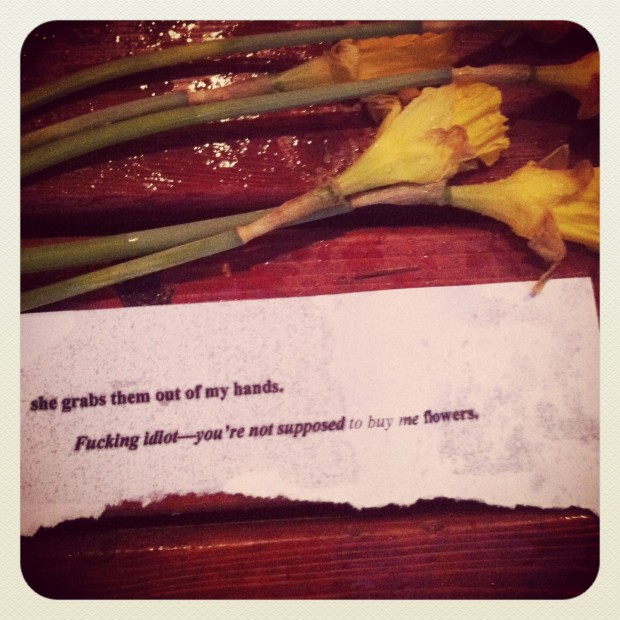 she grabs them out of my hands.
Fucking idiot—you're not supposed to buy me flowers.